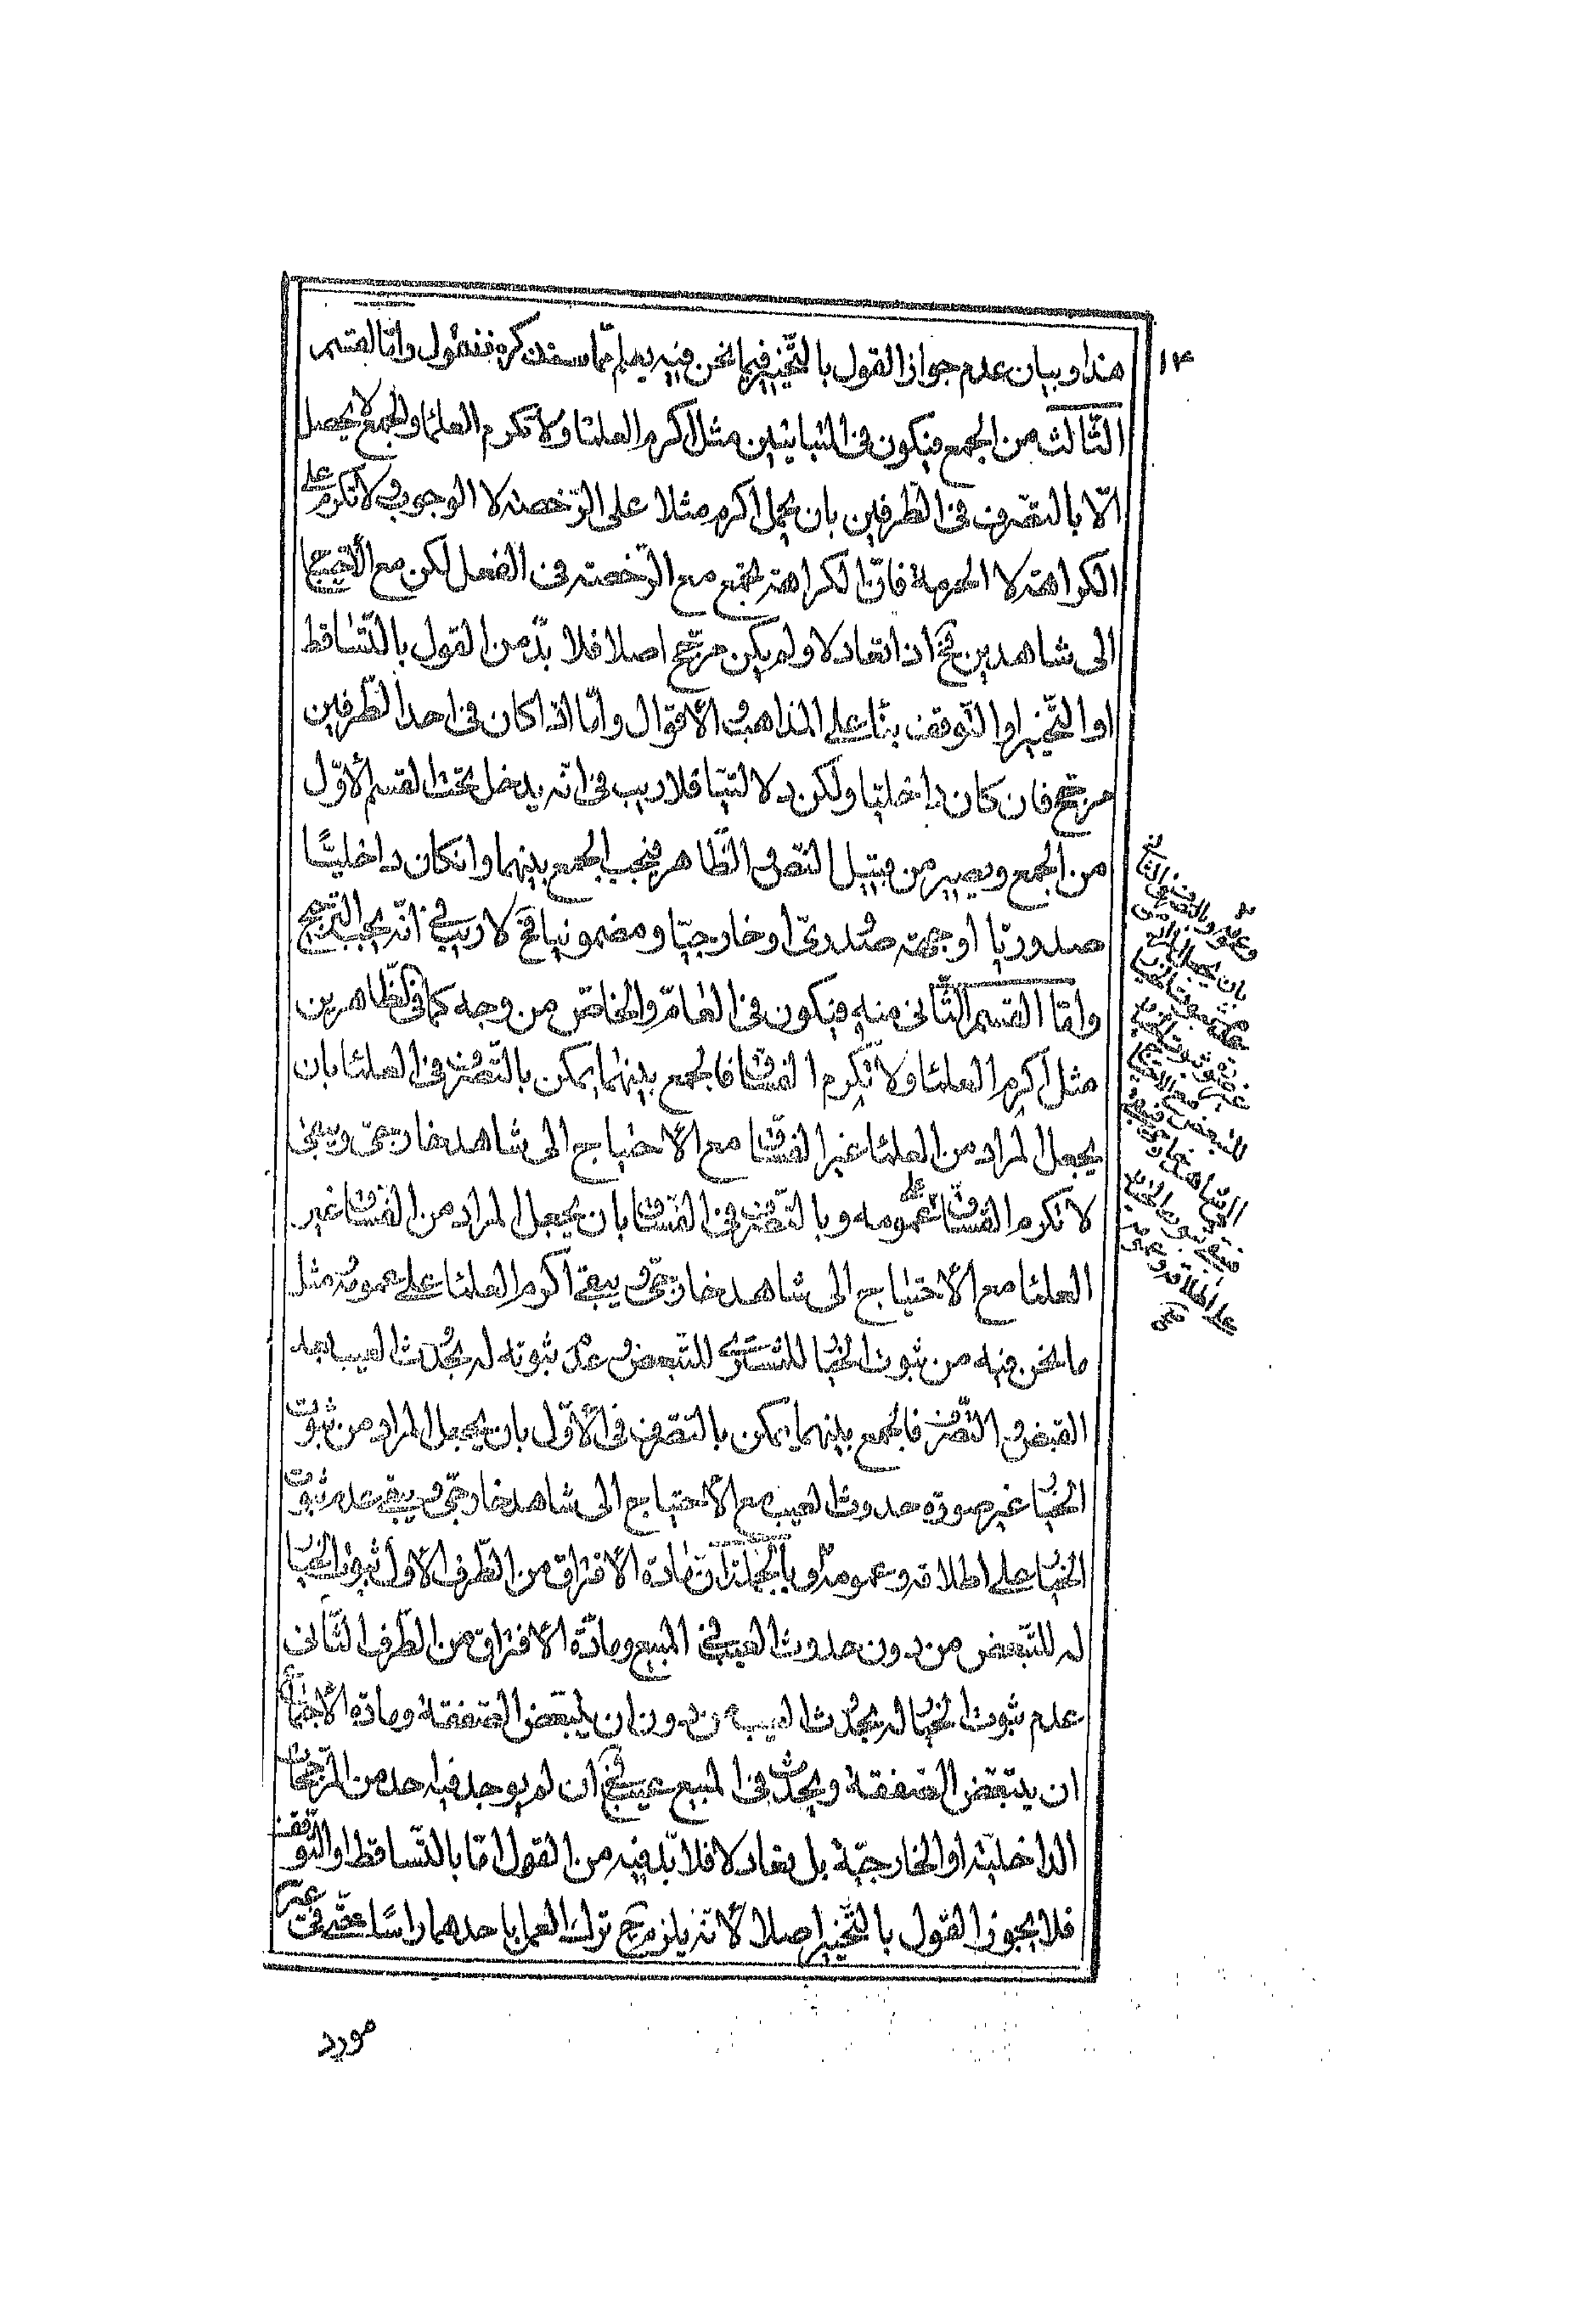 ١٤
هذا وبيان عدم جواز القول بالتّخيير فيما نحن فيه يعلم ممّا سنذكره فنقول وامّا القسم
الثّالث من الجمع فيكون فى المتباينين مثل اكرم العلماء ولا تكرم العلماء والجمع لا يحصل
الّا بالتصّرف فى الطّرفين بان يحمل اكرم مثلا على الرّخصة لا الوجوب ولا تكرم على
الكراهة لا الحرمة فانّ الكراهة تجتمع مع الرّخصة فى الفعل لكن مع الأحتياج
الى شاهدين فح اذا تعادلا ولم يكن مرجّح اصلا فلا بدّ من القول بالتّساقط
او التّخيير او التّوقف بناء على المذاهب والأقوال وامّا اذا كان فى احد الطّرفين
مرجّح فان كان داخليا ولكن دلالتيا فلا ريب فى انّه يدخل تحت القسم الأوّل
من الجمع ويصير من قبيل النّص والظّاهر فيجب الجمع بينهما وان كان داخليًّا
صدوريّا او جهة صدورىّ او خارجيّا ومضمونيا فح لا ريب فى انّه يجب التّرجيح
وامّا القسم الثّانى منه فيكون فى العامّ والخاصّ من وجه كما فى الظّاهرين
مثل اكرم العلماء ولا تكرم الفساق فالجمع بينهما يمكن بالتّصّرف فى العلماء بان
يجعل المراد من العلماء غير الفساق مع الأحتياج الى شاهد خارجىّ ويبقى
لا تكرم الفساق على عمومه وبالتّصرف فى الفساق بان يجعل المراد من الفساق غير
العلماء مع الأحتياج الى شاهد خارجىّ ويبقى اكرم العلماء على عمومه مثل
ما نحن فيه من ثبوت الخيار للمشترى للتبعض وعدم ثبوته له لحدوث العيب بعد
القبض والتّصرف فالجمع بينهما يمكن بالتصّرف فى الأوّل بان يجعل المراد من ثبوت
الخيار غير صورة حدوث العيب مع الأحتياج الى شاهد خارجىّ ويبقى عدم ثبوت
الخيار على اطلاقه وعمومه وبالجملة انّ مادّة الأفتراق من الطّرف الأوّل ثبوت الخيار
له للتّبعض من دون حدوث العيب فى المبيع ومادّة الأفتراق من الطّرف الثّانى
عدم ثبوت الخيار له لحدوث العيب من دون ان يتبعّض الصّفقة ومادّة الأجتماع
ان يتبعّض الصّفقة ويحدث فى المبيع عيب فح ان لم يوجد فيه احد من المرجّحات
الداخليّة او الخارجيّة بل تعادلا فلا بدّ فيه من القول امّا بالتّساقط او التّوقف
فلا يجوز القول بالتّخيير اصلا لأنّه يلزم ح ترك العمل باحدهما راسًا حتّى فى غير
مورد
بان يجعل المراد من
عدم ثبوت الخيار
غير صورة ثبوت الخيار
للتبعض مع الاحتياج
الى شاهد خارجى
فيبقى ثبوت الخيار
على اطلاقه وعمومه